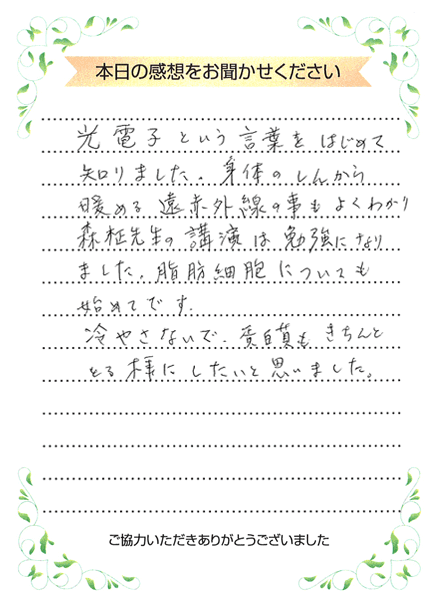 本日の感想をお聞かせください
光電子という言葉をはじめて
知りました。身体のしんから
暖める遠赤外線の事もよくわかり
森柾先生の講演は勉強になり
ました。脂肪細胞についても
始めてです.
冷やさないで、蛋白質もきちんと
とる様にしたいと思いました。
ご協力いただきありがとうございました